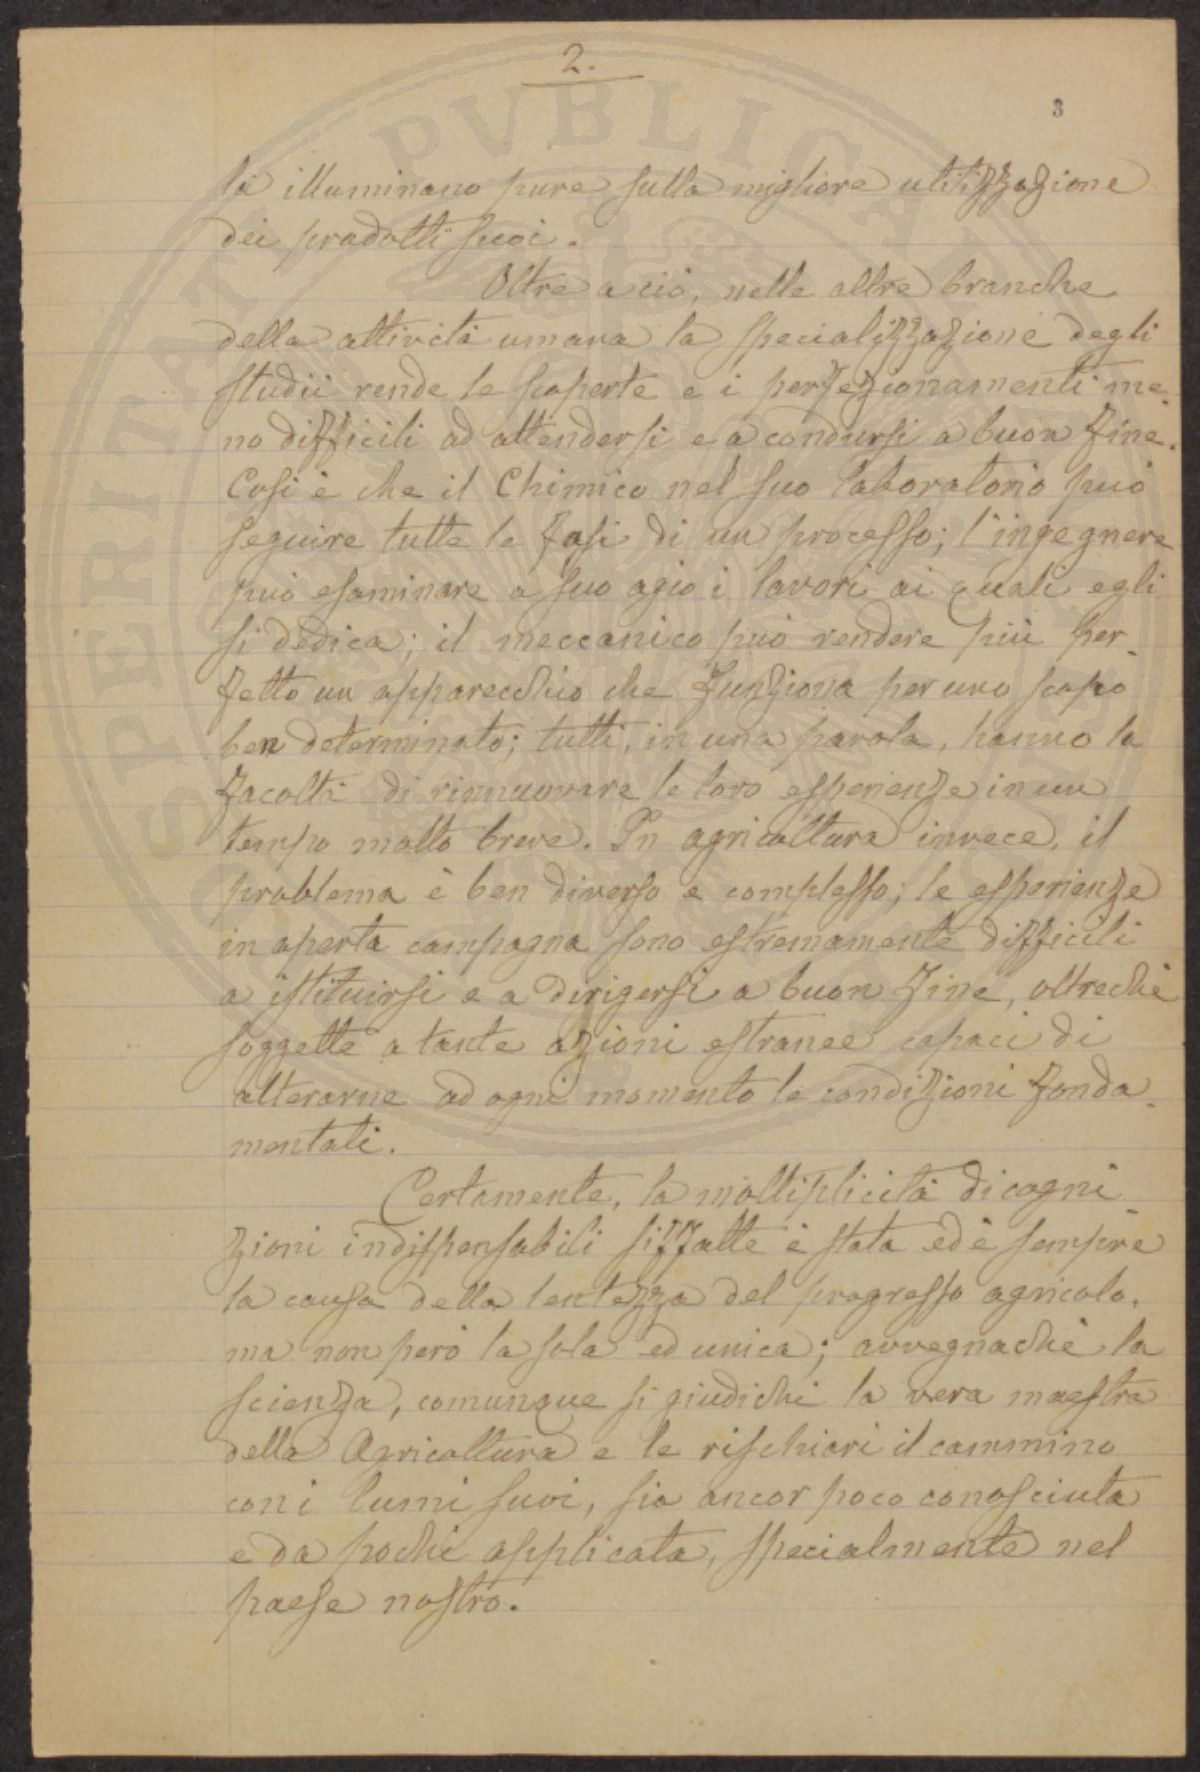 2.
3
la illuminano pure sulla migliore utilizzazione
dei prodotti suoi.
Oltre a ciò, nelle altre branche
della attività umana la specializzazione degli
studii rende le scoperte e i perfezionamenti me-
no difficili ad attendersi e a condursi a buon fine.
Così è che il Chimico nel suo laboratorio può
seguire tutte le fasi di un processo; l'ingegnere
può esaminare a suo agio i lavori ai quali egli
si dedica; il meccanico può rendere più per-
fetto un apparecchio che funziona per uno scopo
ben determinato; tutti, in una parola, hanno la
facoltà di rinnuovare le loro esperienze in un
tempo molto breve. In agricoltura invece, il
problema è ben diverso e complesso; le esperienze
in aperta campagna sono estremamente difficili
a istituirsi e a dirigersi a buon fine, oltrechè
soggette a tante azioni estranee capaci di
alterarne ad ogni momento le condizioni fonda-
mentali.
Certamente, la moltiplicità di cogni
zioni indispensabili siffatte è stata ed è sempre
la causa della lentezza del progresso agricolo,
ma non però la sola ed unica; avvegnachè la
scienza, comunque si giudichi la vera maestra
della Agricoltura e le rischiari il cammino
con i lumi suoi, sia ancor poco conosciuta
e da pochi applicata, specialmente nel
paese nostro.
PERITATI PVBLICAE